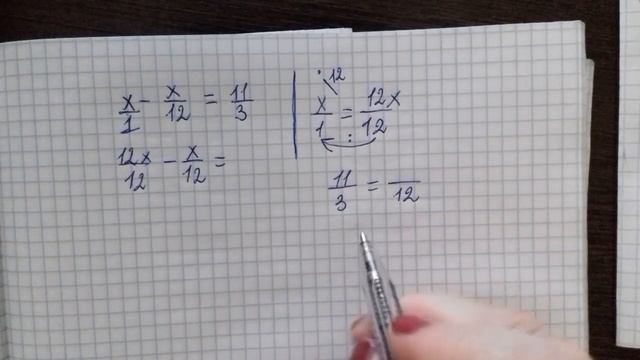 x/1 - x/12 = 11/3
12x/12 - x/12 =
· 12
x/1 = 12x/12
:
11/3 = /12